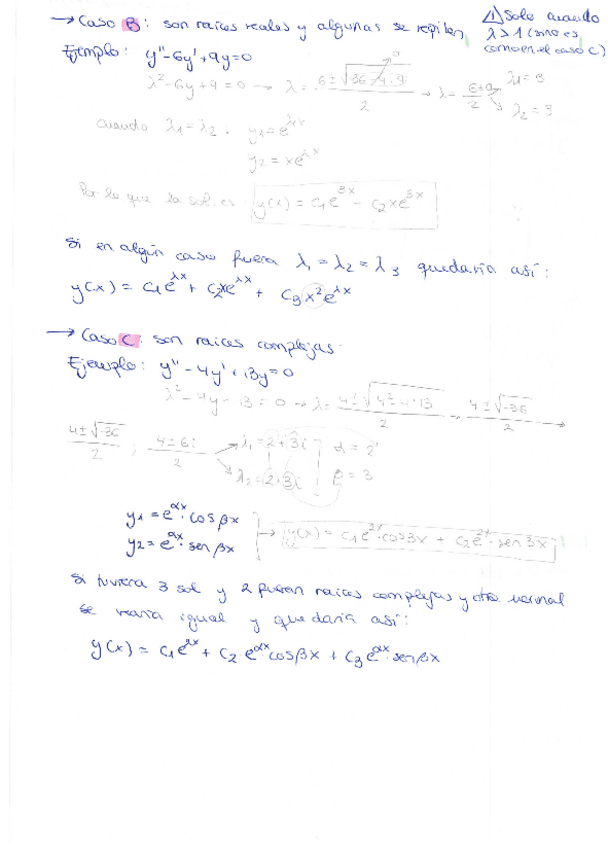 → Caso B: son raices reales y algunas se repiten
⚠ Solo cuando
λ>1 (sino es
como en el caso C)
Ejemplo: y''-6y'+9y=0
λ²-6y+9=0 → λ = (6±√(36-4·9))/2 → λ = (6±0)/2
0
λ1=3
λ2=3
Cuando λ1=λ2: y1=e^λx
y2=xe^λx
Por lo que la sol. es y(x) = c1e^3x - c2xe^3x
Si en algún caso fuera λ1=λ2=λ3 quedaría así:
y(x) = c1e^λx + c2xe^λx + c3x²e^λx
→ Caso C: son raices complejas.
Ejemplo: y''-4y'+13y=0
λ²-4y-13=0 → λ = (4±√(4²-4·13))/2 = (4±√-36)/2 →
(4±√-36)/2 ; (4±6i)/2
λ1=2+3i
α=2
λ2=2+3i
β=3
y1=e^αx·cosβx
y2=e^αx·senβx
→ y(x) = c1e^2x·cos3x + c2e^2x·sen3x
Si tuviera 3 sol y 2 fueran raices complejas y otra normal
se haría igual y quedaría así:
y(x) = c1e^αx + c2e^αx cosβx + c3e^αx·senβx